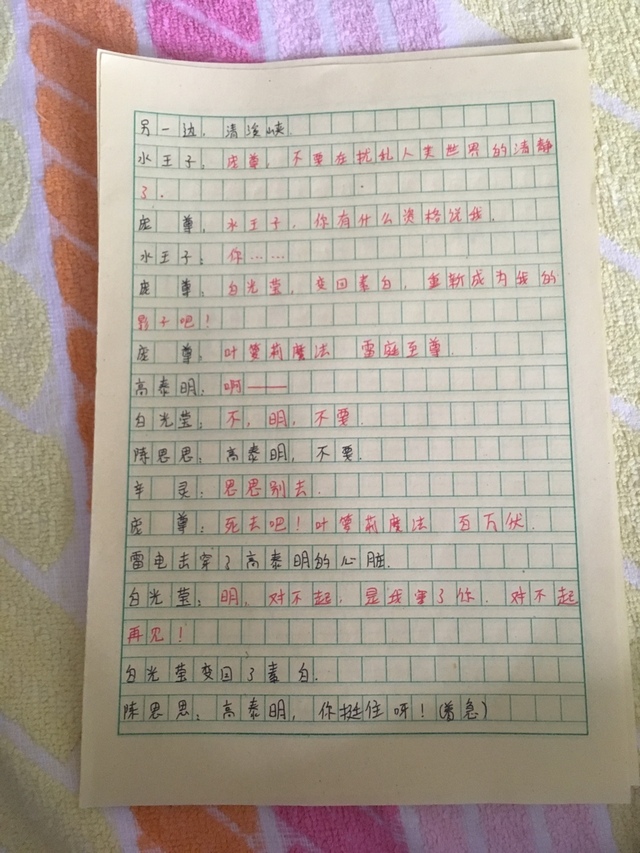 另一边，清溪峡.
水王子：庞尊，不要在扰乱人类世界的清静
了.
庞尊，水王子，你有什么资格说我.
水王子：你……
庞尊：白光莹，变回素白，重新成为我的
影子吧！
庞尊：叶箩莉魔法 雷庭至尊.
高泰明：啊——
白光莹：不，明，不要.
陈思思：高泰明，不要.
辛灵：思思别去.
庞尊：死去吧！叶箩莉魔法 百万伏.
雷电击穿了高泰明的心脏.
白光莹：明，对不起，是我害了你，对不起
再见！
白光莹变回了素白.
陈思思：高泰明，你挺住呀！(着急)